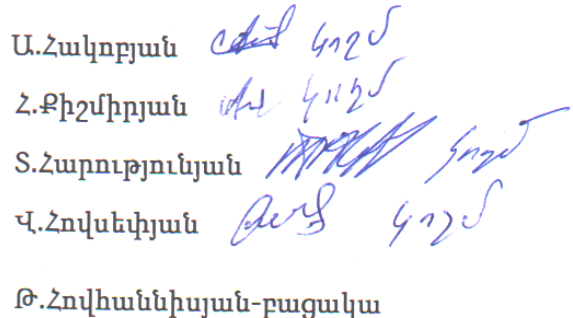 Ա.Հակոբյան կողմ
Հ.Քիշմիրյան կողմ
Տ.Հարությունյան կողմ
Վ.Հովսեփյան կողմ
Թ.Հովհաննիսյան-բացակա